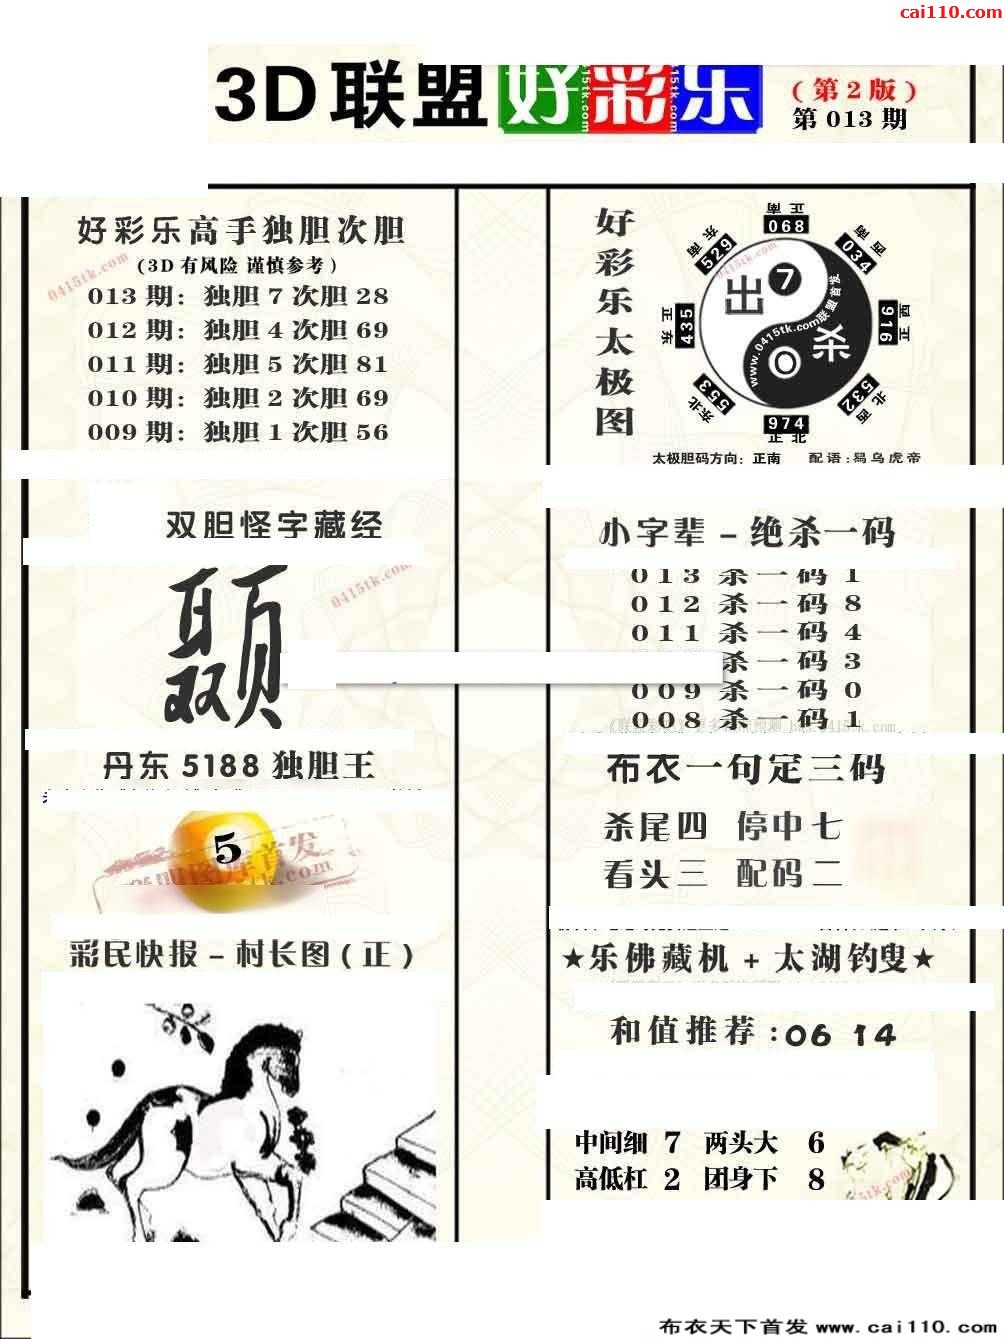 cai110.com
3D联盟 好彩乐
(第2版)
第013期
好彩乐高手独胆次胆
(3D有风险 谨慎参考)
0415tk.com
013期：独胆7次胆28
012期：独胆4次胆69
011期：独胆5次胆81
010期：独胆2次胆69
009期：独胆1次胆56
好彩乐太极图
正南 068
东南 529
西南 034
正东 435
西正 916
东北 553
北西 532
974 正北
出 7
杀 0
www.0415tk.com联盟首发
0415tk.com
太极胆码方向：正南 配语：易乌虎帝
双胆怪字藏经
0415tk.com
小字辈－绝杀一码
013 杀一码 1
012 杀一码 8
011 杀一码 4
杀一码 3
009 杀一码 0
008 杀一码 1
丹东5188独胆王
5
布衣一句定三码
杀尾四 停中七
看头三 配码二
彩民快报－村长图(正)
★乐佛藏机+太湖钓叟★
和值推荐:06 14
中间细 7 两头大 6
高低杠 2 团身下 8
布衣天下首发 www.cai110.com